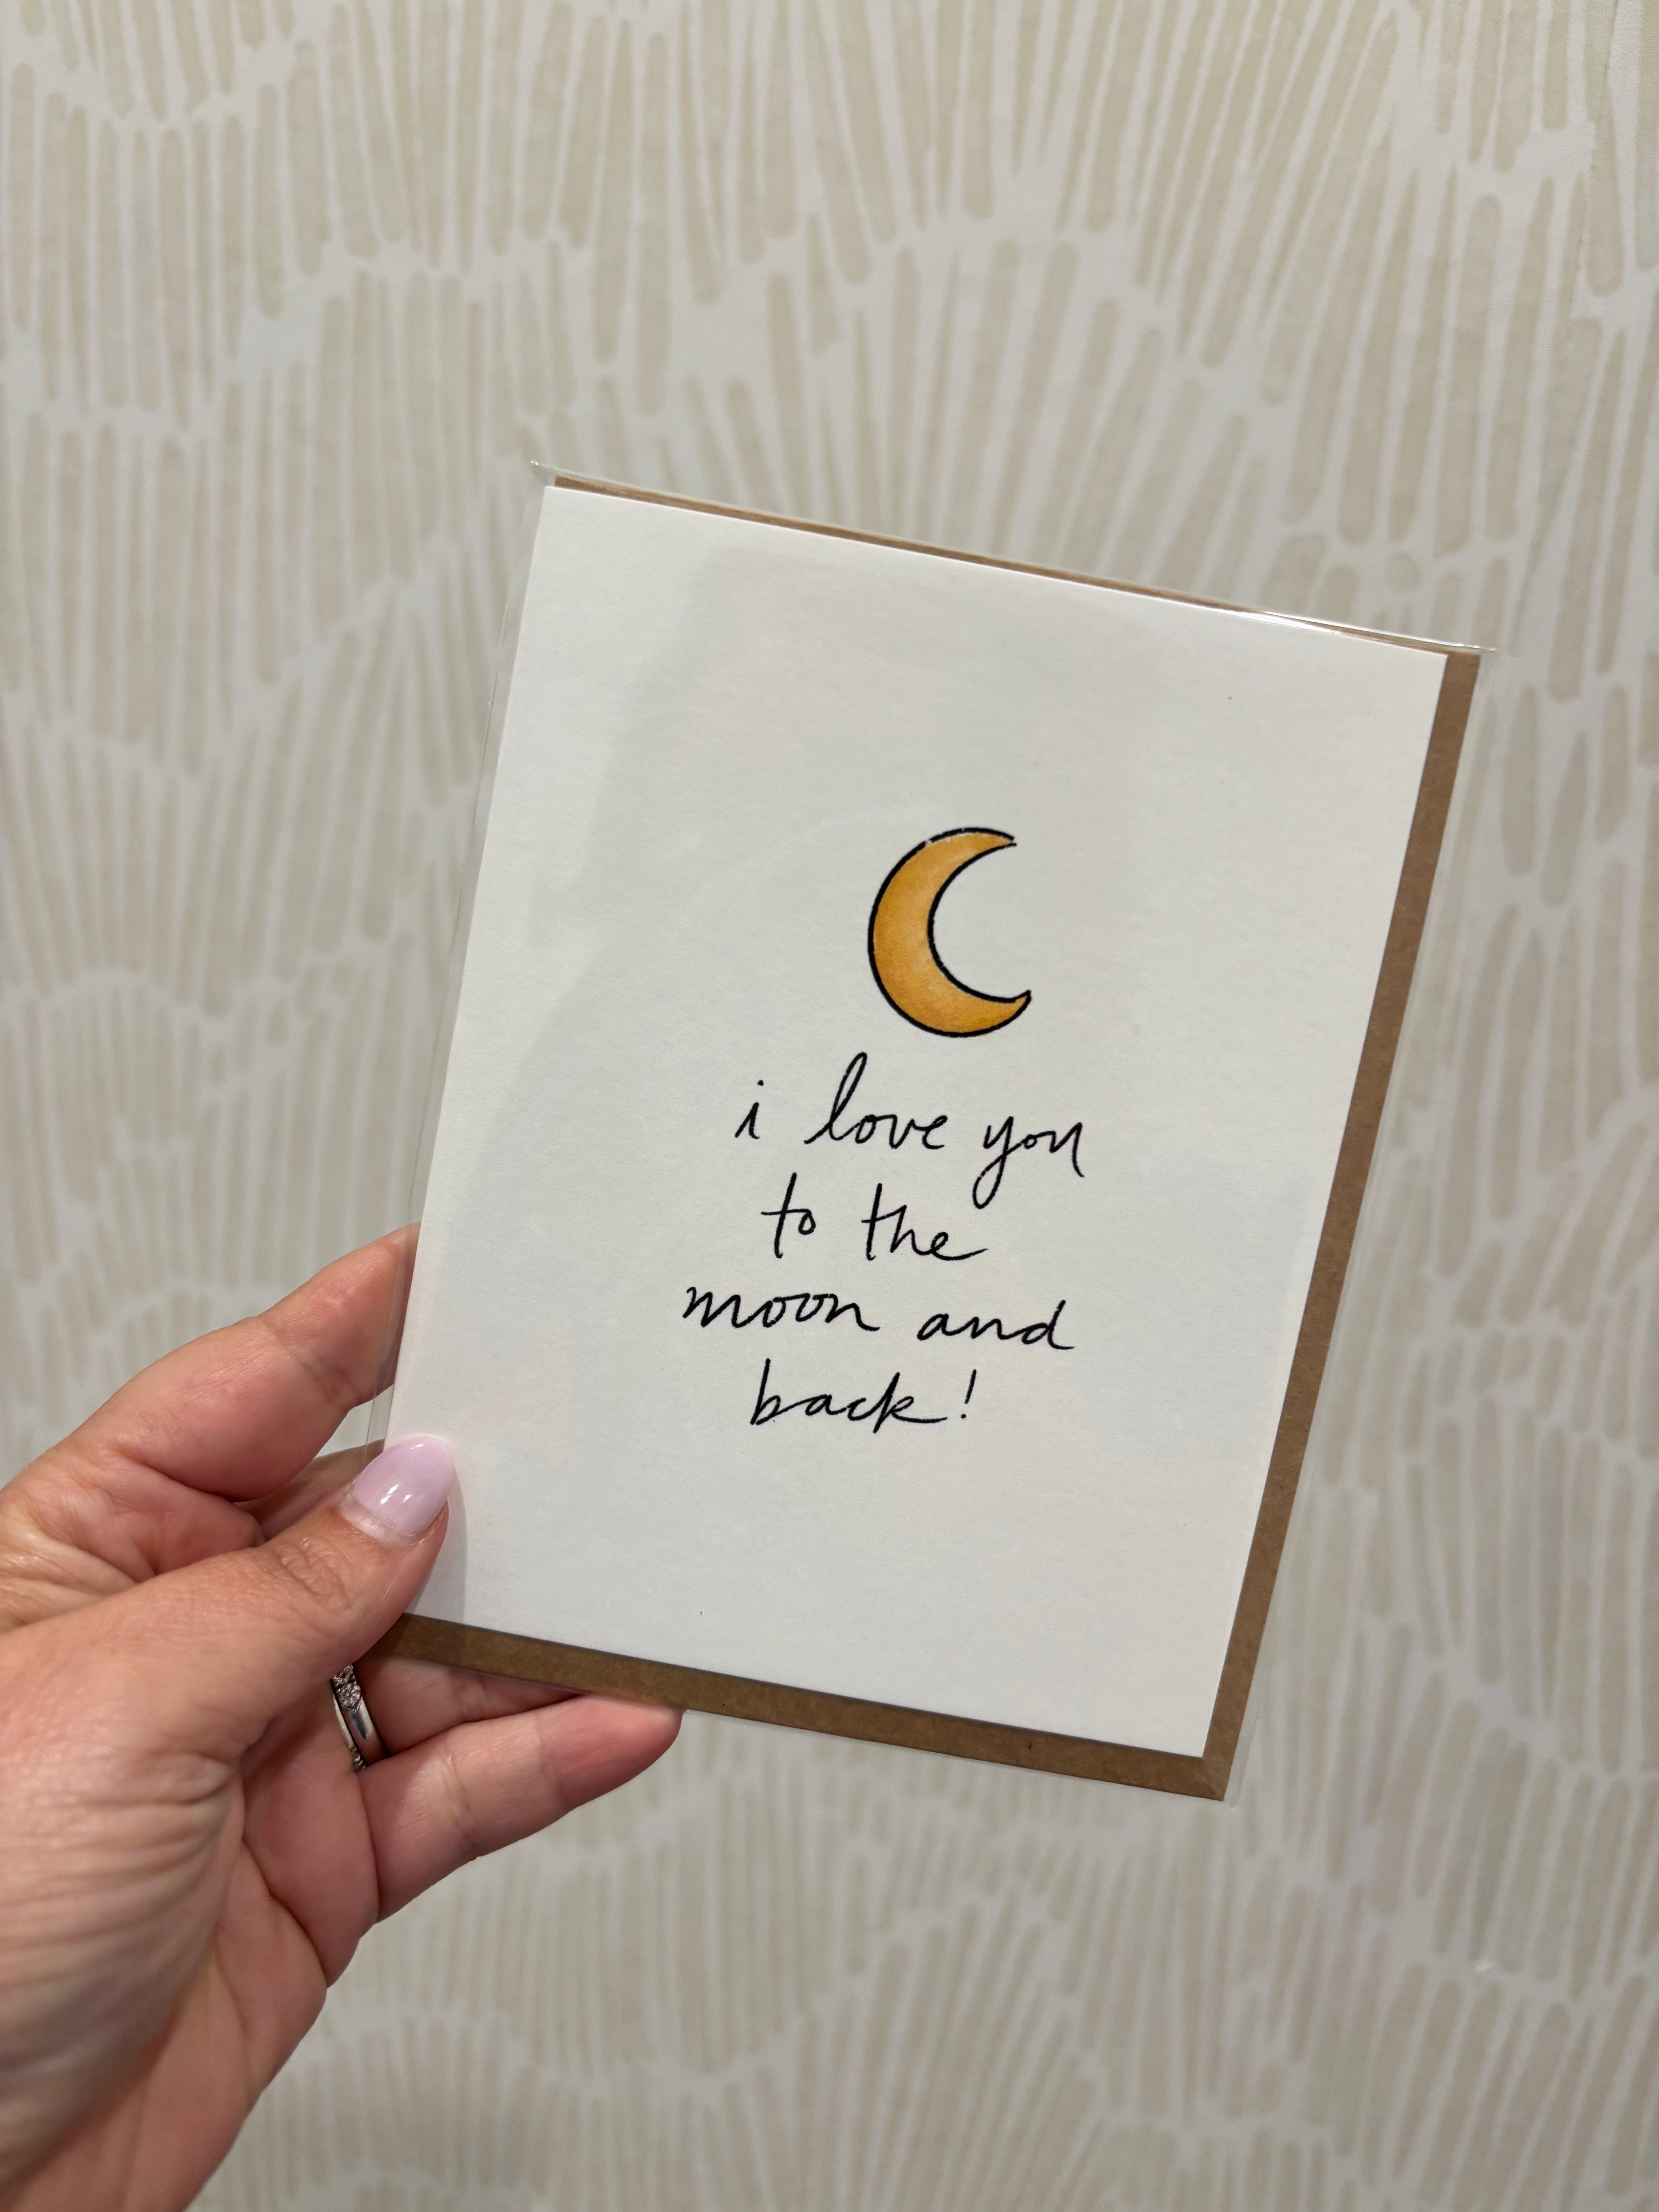 i love you
to the
moon and
back!